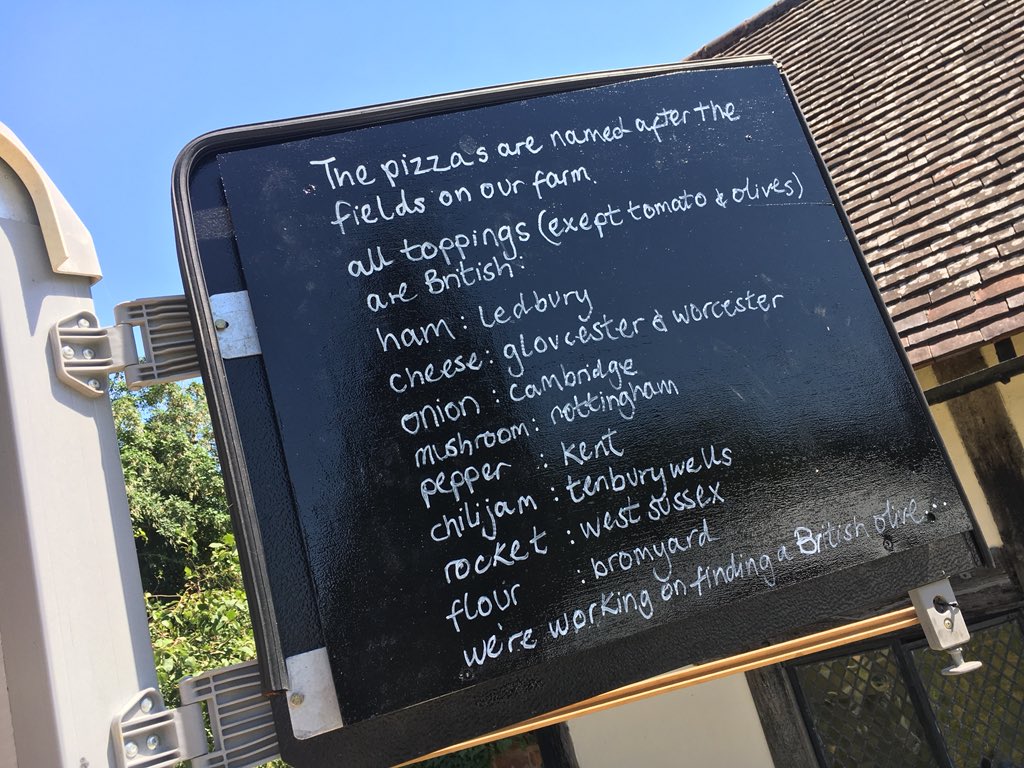 The pizzas are named after the
fields on our farm.
all toppings (exept tomato & olives)
are British:
ham: Ledbury
cheese: gloucester & worcester
onion: cambridge
mushroom: nottingham
pepper : Kent
chilijam : tenbury wells
rocket : west sussex
flour : bromyard
we're working on finding a British olive...